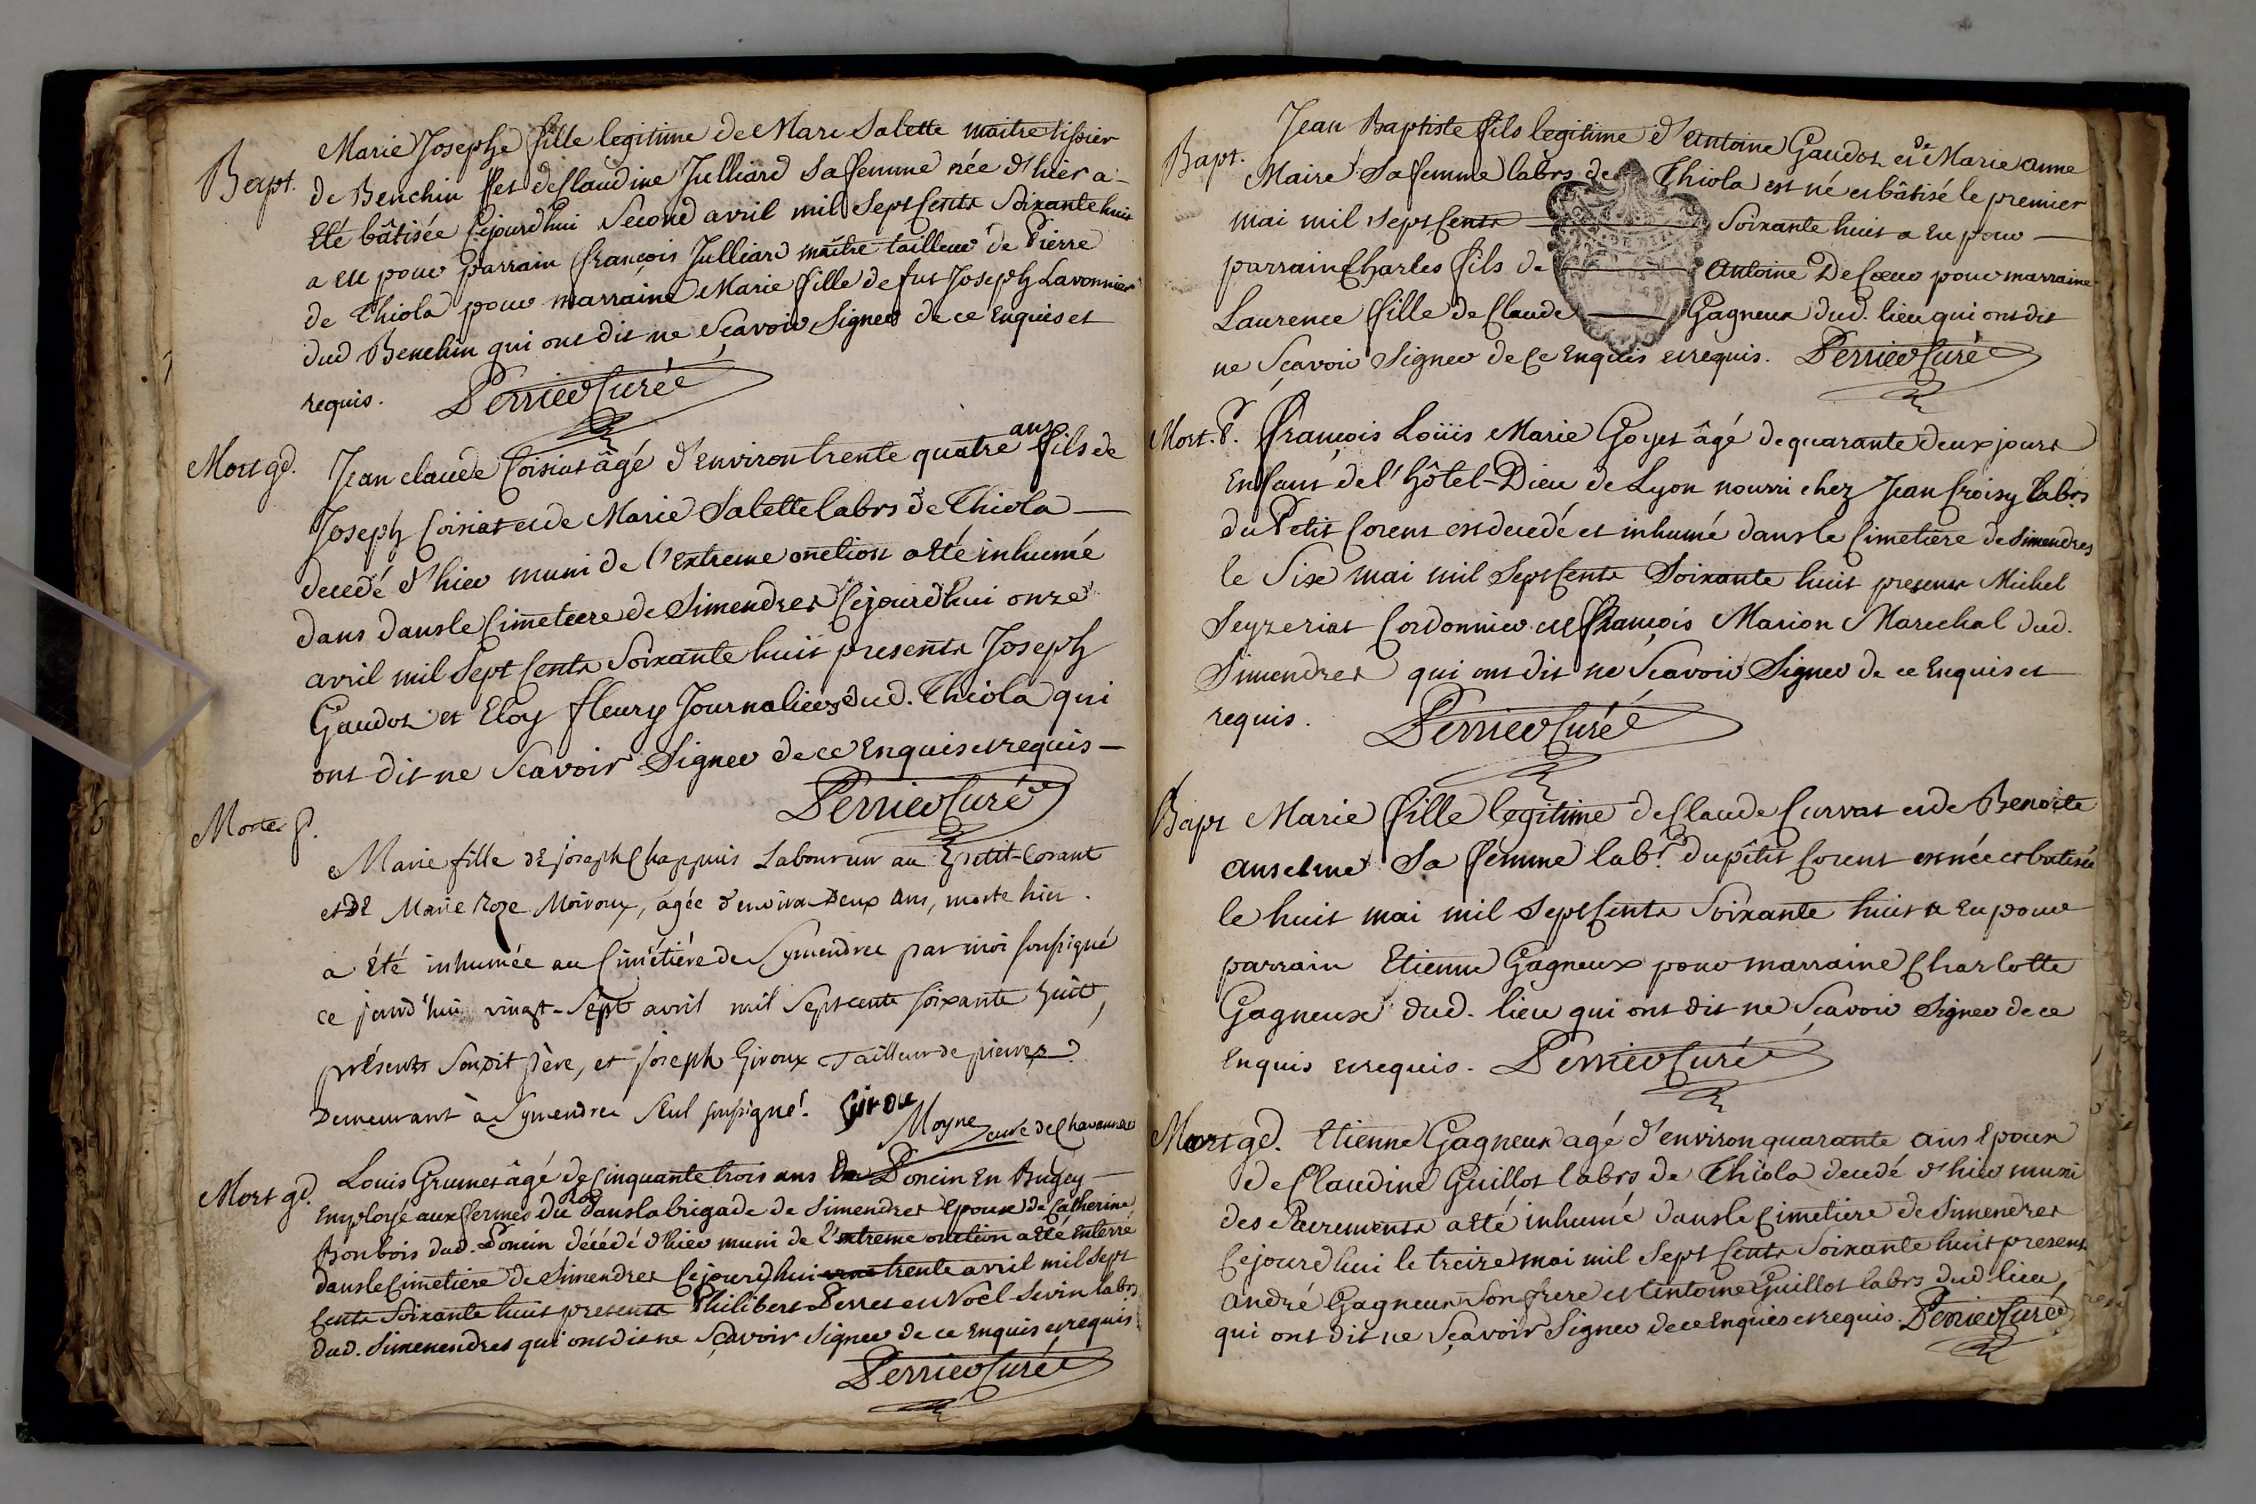 Bapt. Marie Josephe fille legitime de Marc Salette maitre tissier
de Benchin et de Claudine Julliard Sa femme née d'hier a
Eté bâtisée Cejourdhui Second avril mil Sept Cents Soixante huit
a eu pour parrain françois Julliard maître tailleur de Pierre
de Thiola pour marraine Marie fille de fut Joseph Lavonnier
dud Benchin qui ont dit ne Sçavoir Signer de ce Enquis et
requis. Perrier Curé
Mort gd. Jean claude Coisiat âgé d'environ trente quatre ans fils de
Joseph Coisiat et de Marie Salette labrs de Thiola
decedé d'hier muni de l'extreme onction a Eté inhumé
dans dans le Cimetiere de Simendres Cejourdhui onze
avril mil Sept Cents Soixante huit presents Joseph
Gaudoz et Eloy fleury Journaliers dud. Thiola qui
ont dit ne Scavoir Signer de ce Enquis et requis
Perrier Curé
Morte p.
Marie fille de joseph Chappuis Laboureur au petit-Corant
et de Marie Roze Moiroux, agée d'environ Deux ans, morte hier.
a été inhumée au Cimétiére de Symendre par moi soussigné
ce jourd'hui vingt-sept avril mil Sept cents soixante huit,
présents Sondit Père, et joseph Giroux Tailleur de pierres
Demeurant à Symendre seul soussigné. Girou
Moyne curé de Chavannes
Mort gd. Louis Grumet âgé de Cinquante trois ans de Poncin En Bugey
Employé aux fermes du Roy dans la brigade de Simendres Epoux de Catherine
Bonbois dud. Poncin décédé d'hier muni de l'extreme onction a Eté Enterré
dans le Cimetiére de Simendres Cejourdhui trente avril mil Sept
Cents Soixante huit presents Philibert Perret et Noël Sivin labrs
dud. Simenendres qui ont dit ne Sçavoir Signer de ce Enquis et requis
Perrier Curé
Bapt. Jean Baptiste fils legitime d'Antoine Gaudoz et de Marie Anne
Maire Sa femme labrs de Thiola est né et bâtisé le premier
mai mil Sept Cents Soixante huit a Eu pour
parrain Charles fils de Antoine De Coeur pour marraine
Laurence fille de Claude Gagneux dud. lieu qui ont dit
ne Sçavoir Signer de Ce Enquis et requis. Perrier Curé
Mort. P. François Loüis Marie Goyet âgé de quarante deux jours
Enfant de l'hôtel-Dieu de Lyon nourri chez Jean Croisy labrs
du Petit Corent est decedé et inhumé dans le Cimetiere de Simendres
le Six mai mil Sept Cents Soixante huit presents Michel
Seyzeriat Cordonnier et François Marion Marechal dud.
Simendres qui ont dit ne Scavoir Signer de ce Enquis et
requis. Perrier Curé
Bapt Marie fille legitime de Claude Curvat et de Benoite
Anselme Sa femme labrs du pêtit Corent est née et batisée
le huit mai mil Sept Cents Soixante huit a Eu pour
parrain Etienne Gagneux pour marraine Charlotte
Gagneux dud. lieu qui ont dit ne Sçavoir Signer de ce
Enquis et requis. Perrier Curé
Mort gd. Etienne Gagneux agé d'environ quarante ans Epoux
de Claudine Guillot labrs de Thiola decedé d'hier muni
des Sacrements a Eté inhumé dans le Cimetiere de Simendres
Cejourdhui le treize mai mil Sept Cents Soixante huit presents
André Gagneux Son frere et Antoine Guillot labrs dud. lieu
qui ont dit ne Sçavoir Signer de ce Enquis et requis. Perrier Curé